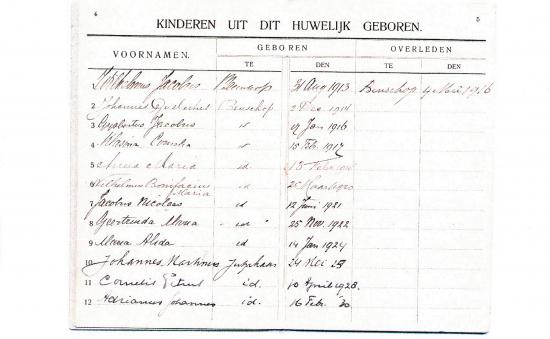 4
5
KINDEREN UIT DIT HUWELIJK GEBOREN.
VOORNAMEN.
GEBOREN
OVERLEDEN
TE
DEN
TE
DEN
Wilhelmus Jacobus 31 Aug 1913 Benschop 4 Mei 1916
2 Johannes Benschop 2 Dec. 1914
3 Gijsbertus Jacobus id 19 Jan 1916
4 id 15 Feb. 1917
5 Anna Maria id 13 Febr
6 Wilhelmus Bonifacius Maria id 25 Maart 1920
7 Jacobus Nicolaas id 12 Juni 1921
8 Geertruida Maria 25 Nov. 1922
9 Maria Alida id 14 Jan 1924
10 Johannes Martinus Jutphaas 24 Mei 25
11 Cornelis Petrus id. 10 April 1928.
12 Adrianus Johannes id. 16 Febr. 30